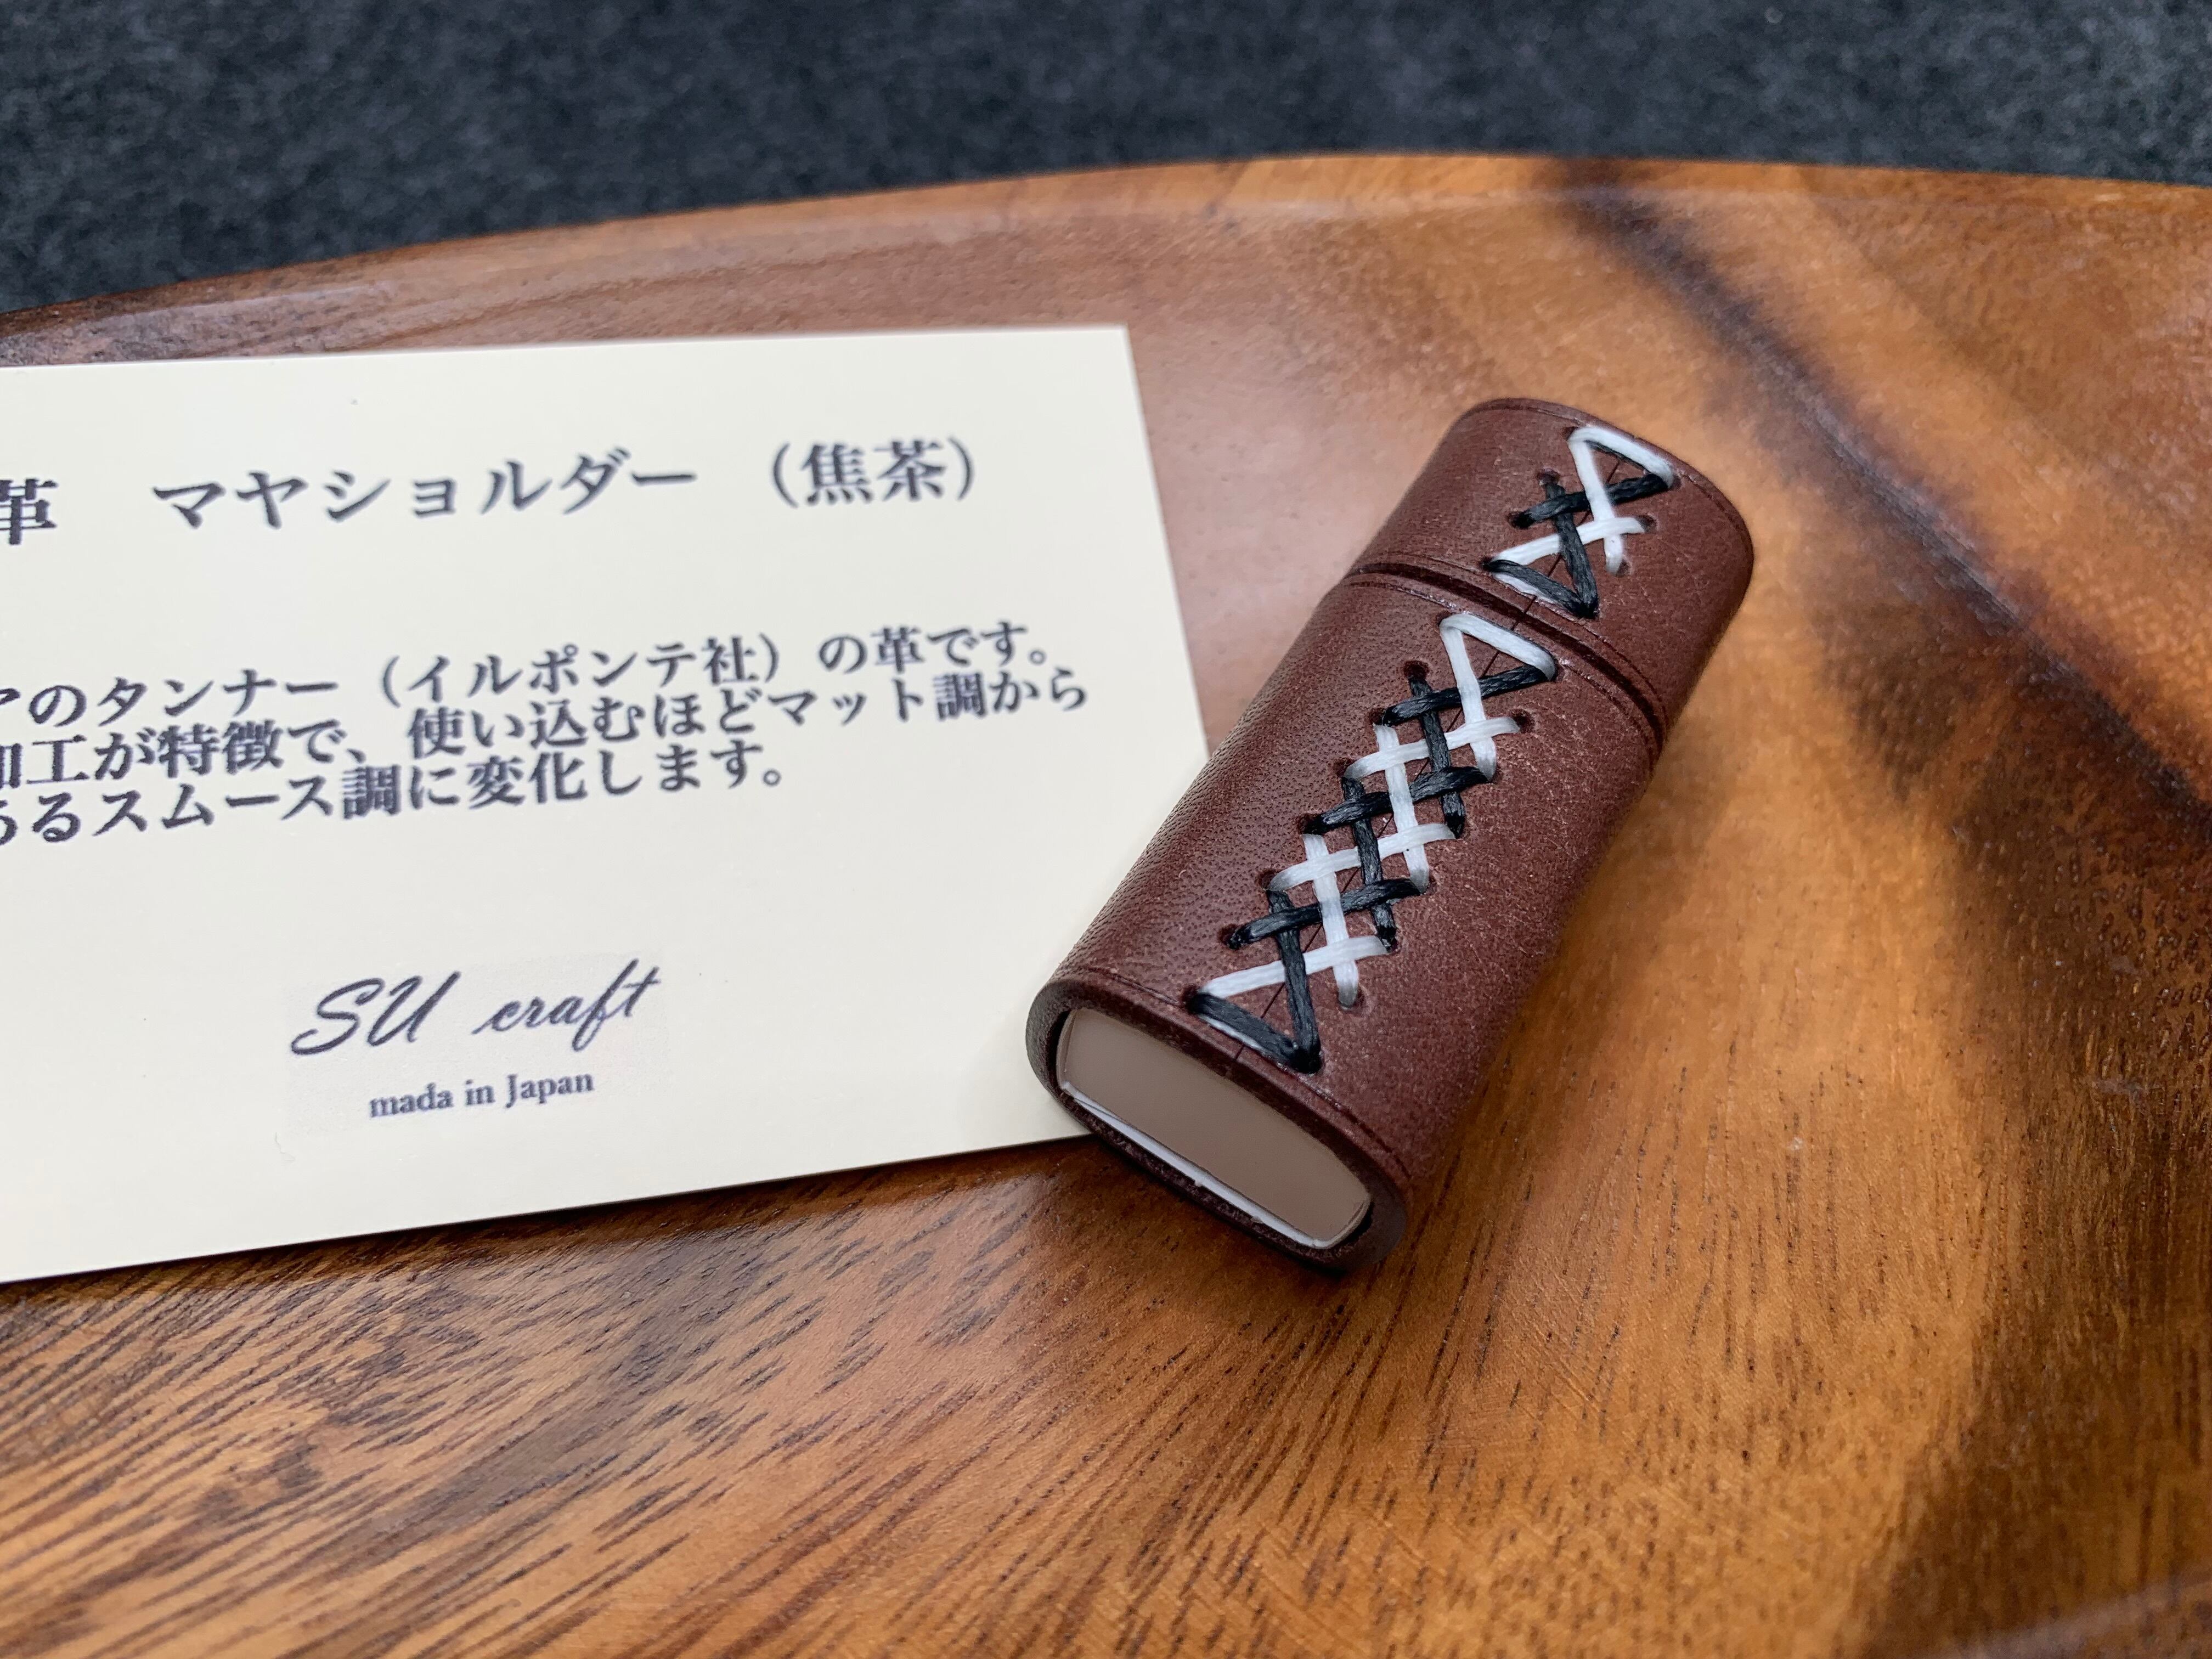 革　マヤショルダー　（焦茶）
のタンナー（イルポンテ社）の革です。
加工が特徴で、使い込むほどマット調から
あるスムース調に変化します。
SU craft
mada in Japan